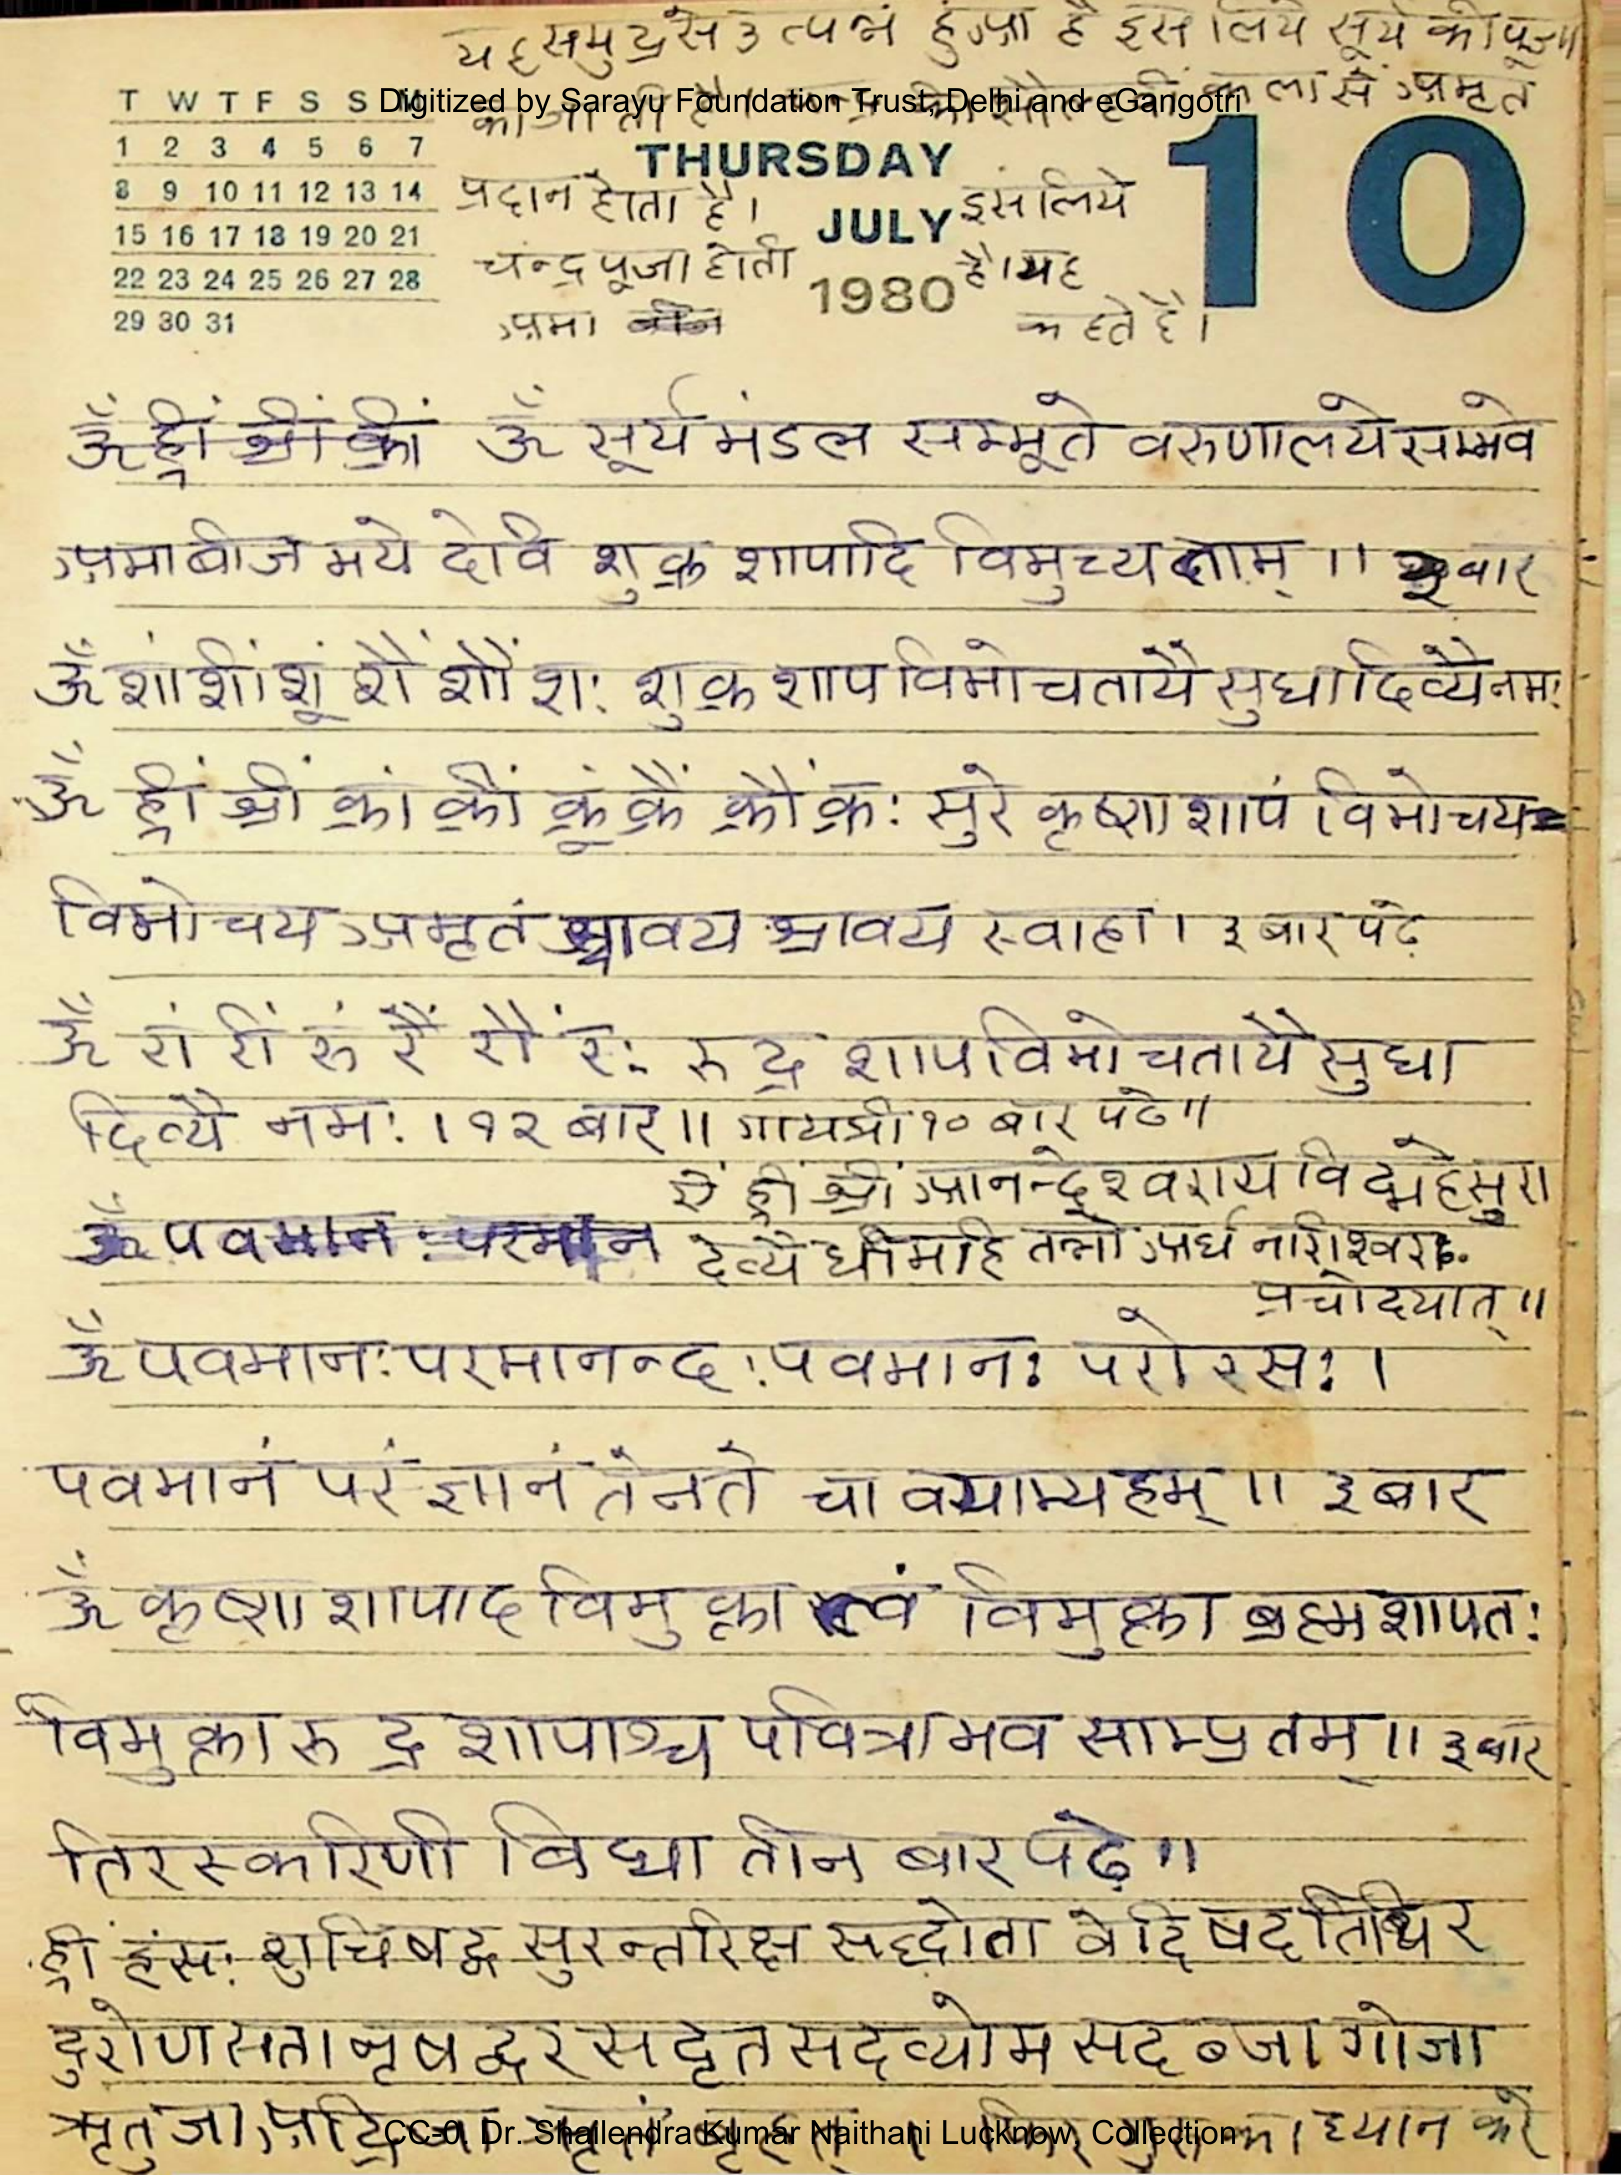 यह समुद्र से उत्पन्न हुआ है इस लिये सूर्य की पूजा
की जाती है। कला से अमृत
Digitized by Sarayu Foundation Trust, Delhi and eGangotri
T W T F S S M
1 2 3 4 5 6 7
8 9 10 11 12 13 14
15 16 17 18 19 20 21
22 23 24 25 26 27 28
29 30 31
THURSDAY
JULY
1980
10
प्रदान होता है। इसलिये
चंन्द्र पूजा होती है। यह
अमा कहते है।
ॐ ह्रीं श्रीं क्रीं ॐ सूर्य मंडल सम्भूते वरुणालये सम्भवे
अमाबीज मये देवि शुक्र शापादि विमुच्यताम् ॥ ३ बार
ॐ शां शीं शूं शैं शौं शः शुक्र शाप विमोचतायै सुधादिव्यै नमः
ॐ ह्रीं श्रीं क्रां क्रीं क्रूं क्रैं क्रौं क्रः सुरे कृष्ण शापं विमोचय
विमोचय अमृतं श्रावय श्रावय स्वाहा। ३ बार पढे़
ॐ रां रीं रुं रैं रौं रः रुद्र शाप विमोचतायै सुधा
दिव्यै नमः। १२ बार॥ गायत्री १० बार पढे॥
ऐं ह्रीं श्रीं आनन्देश्वराय विद्महे सुरा
ॐ पवमानः परमान देव्यै धीमहि तन्नो अर्ध नारीश्वरः
प्रचोदयात्॥
ॐ पवमानः परमानन्दः पवमानः परो रसः।
पवमानं परं ज्ञानं तेनते पावयाम्यहम्॥ ३ बार
ॐ कृष्ण शापाद विमुक्ता त्वं विमुक्ता ब्रह्म शापतः
विमुक्ता रुद्र शापाश्च पवित्रा भव साम्प्रतम्॥ ३ बार
तिरस्करिणी विद्या तीन बार पढे़॥
ह्रीं हंसः शुचिषद्व सुरन्तरिक्ष सद्धोता वेदिषदतिथिर
दुरोणसता नृषद्वर सदृत सदव्योम सदब्जा गोजा
ऋतुजा अद्रिजा ऋतं बृहत्। फिर गुरु का ध्यान करे
CC-0. Dr. Shailendra Kumar Naithani Lucknow, Collection